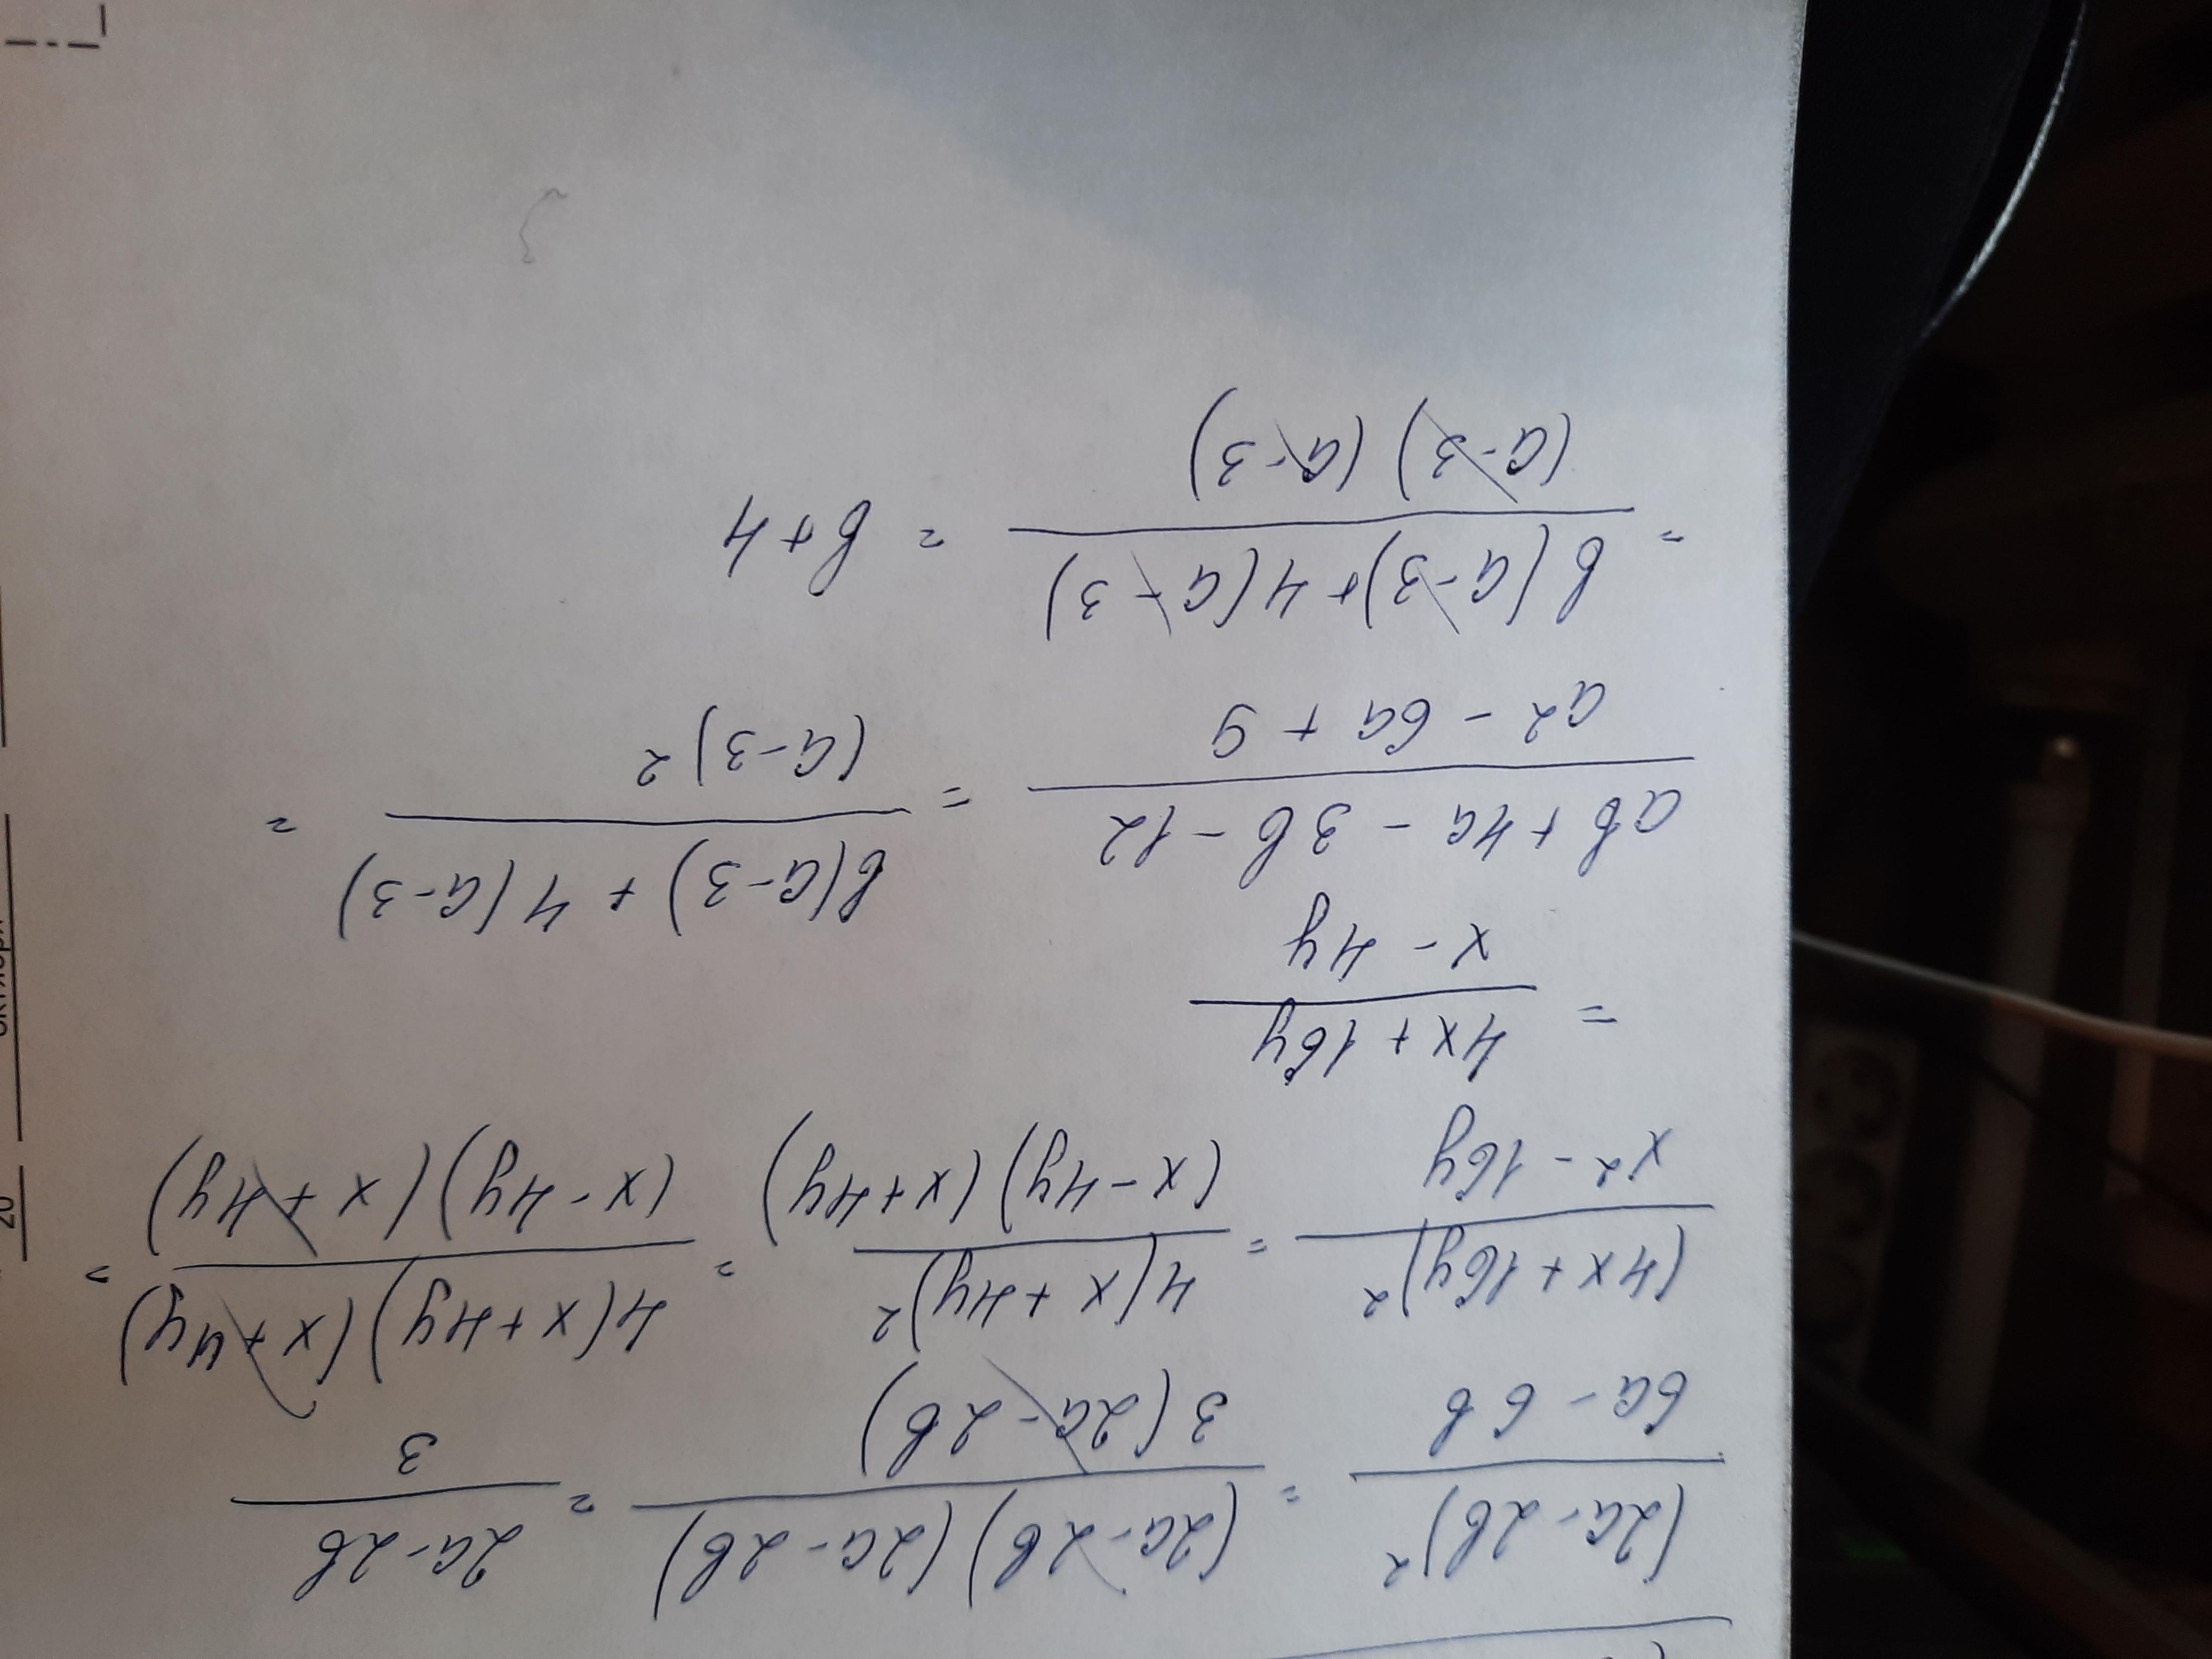 (2a-2b)² / 6a-6b = (2a-2b)(2a-2b) / 3(2a-2b) = 2a-2b / 3
(4x+16y)² / x²-16y = 4(x+4y)² / (x-4y)(x+4y) = 4(x+4y)(x+4y) / (x-4y)(x+4y) =
= 4x+16y / x-4y
ab+4a-3b-12 / a²-6a+9 = b(a-3)+4(a-3) / (a-3)² =
= b(a-3)+4(a-3) / (a-3)(a-3) = b+4
20